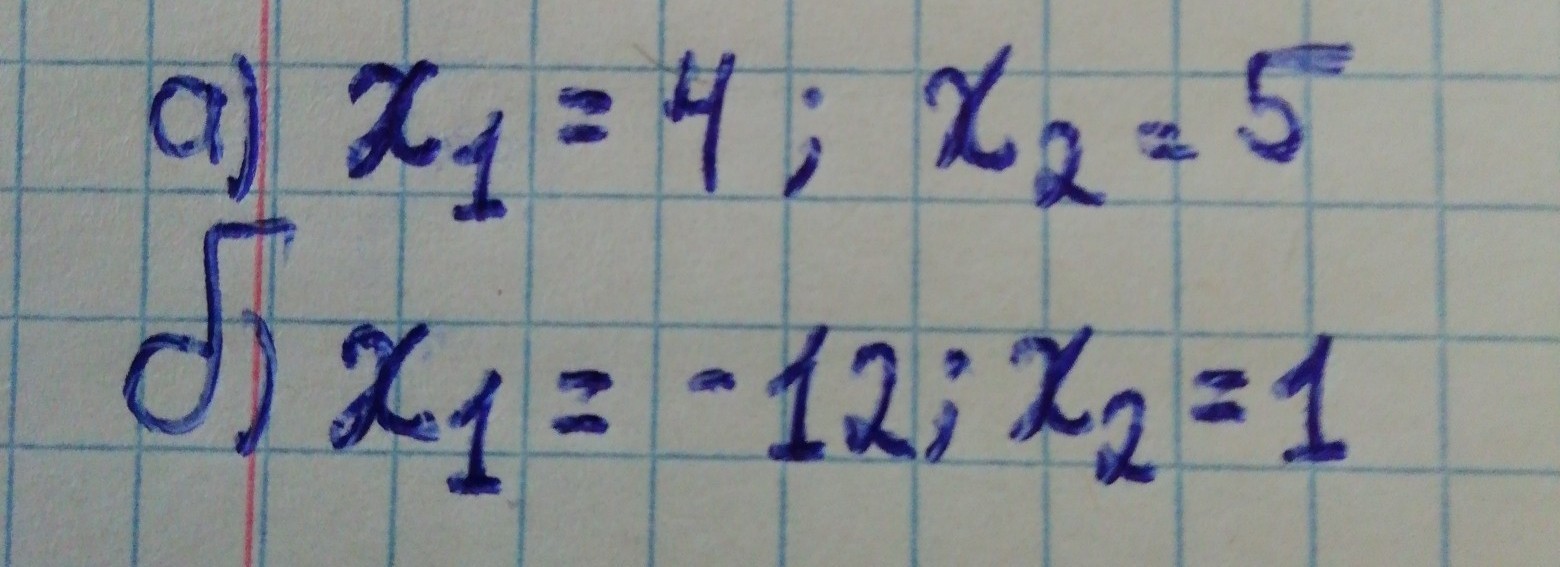 а) x₁ = 4; x₂ = 5
б) x₁ = -12; x₂ = 1